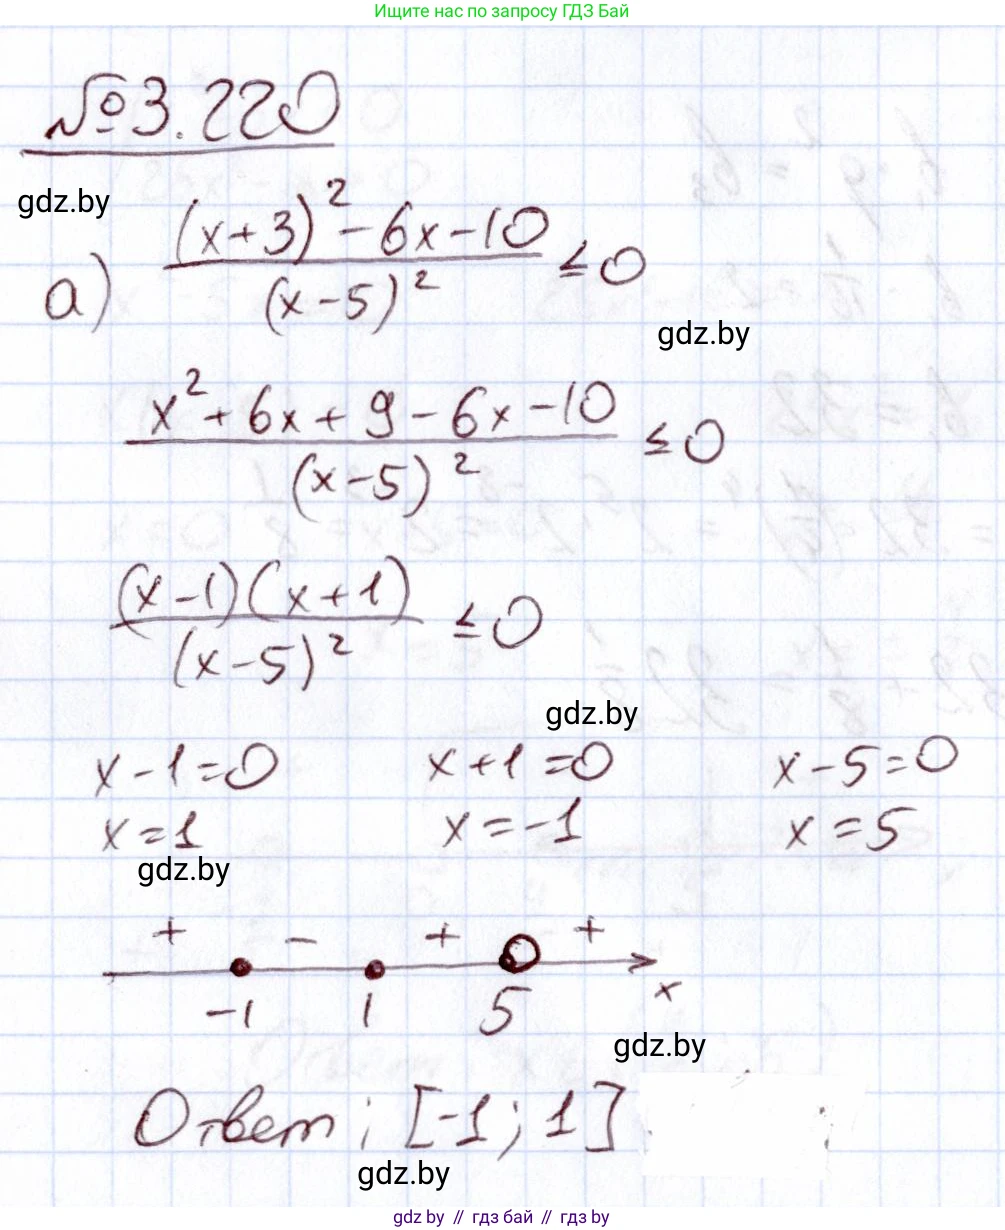 Ищите нас по запросу ГДЗ Бай
№3.220
gdz.by
а) ((x+3)² - 6x - 10) / (x-5)² ≤ 0
gdz.by
(x² + 6x + 9 - 6x - 10) / (x-5)² ≤ 0
((x-1)(x+1)) / (x-5)² ≤ 0
gdz.by
x-1=0 x+1=0 x-5=0
x=1 x=-1 x=5
gdz.by
+ - + +
-1 1 5 x
gdz.by
Ответ: [-1; 1]
gdz.by
gdz.by // гдз бай // гдз by